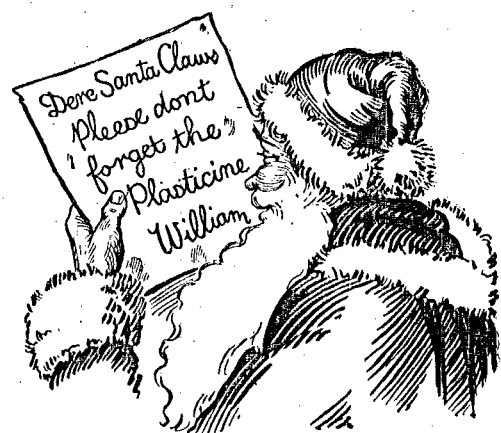 Dere Santa Claus
Pleese dont
forget the
Plasticine
William